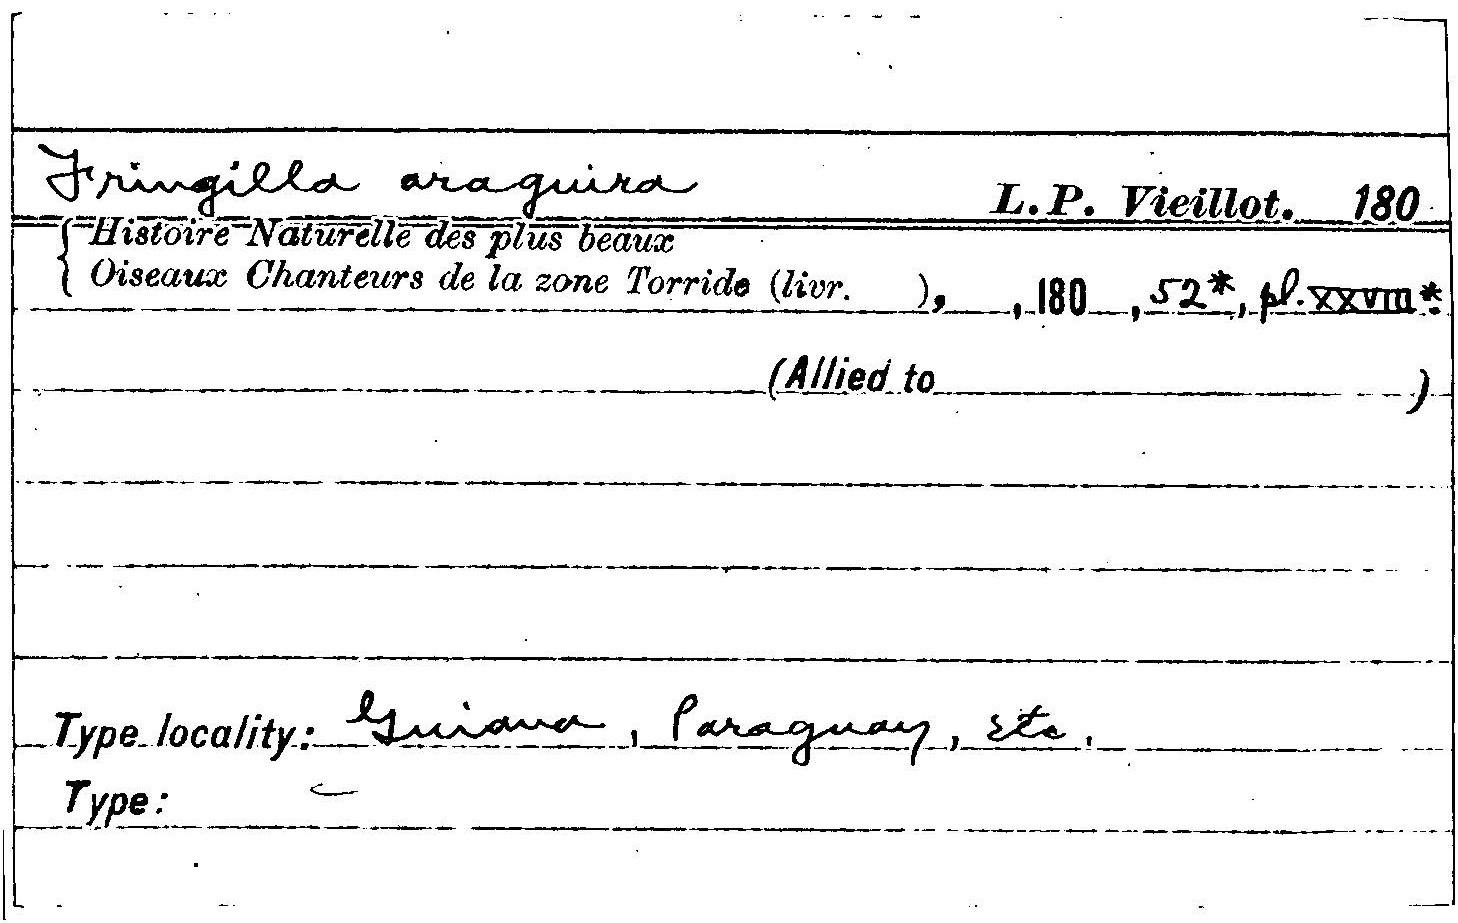 Fringilla araguira L.P. Vieillot. 180
Histoire Naturelle des plus beaux
Oiseaux Chanteurs de la zone Torride (livr. ), , 180 , 52*, pl. XXVIII*.
(Allied to )
Type locality: Guiana, Paraguay, etc.
Type: —